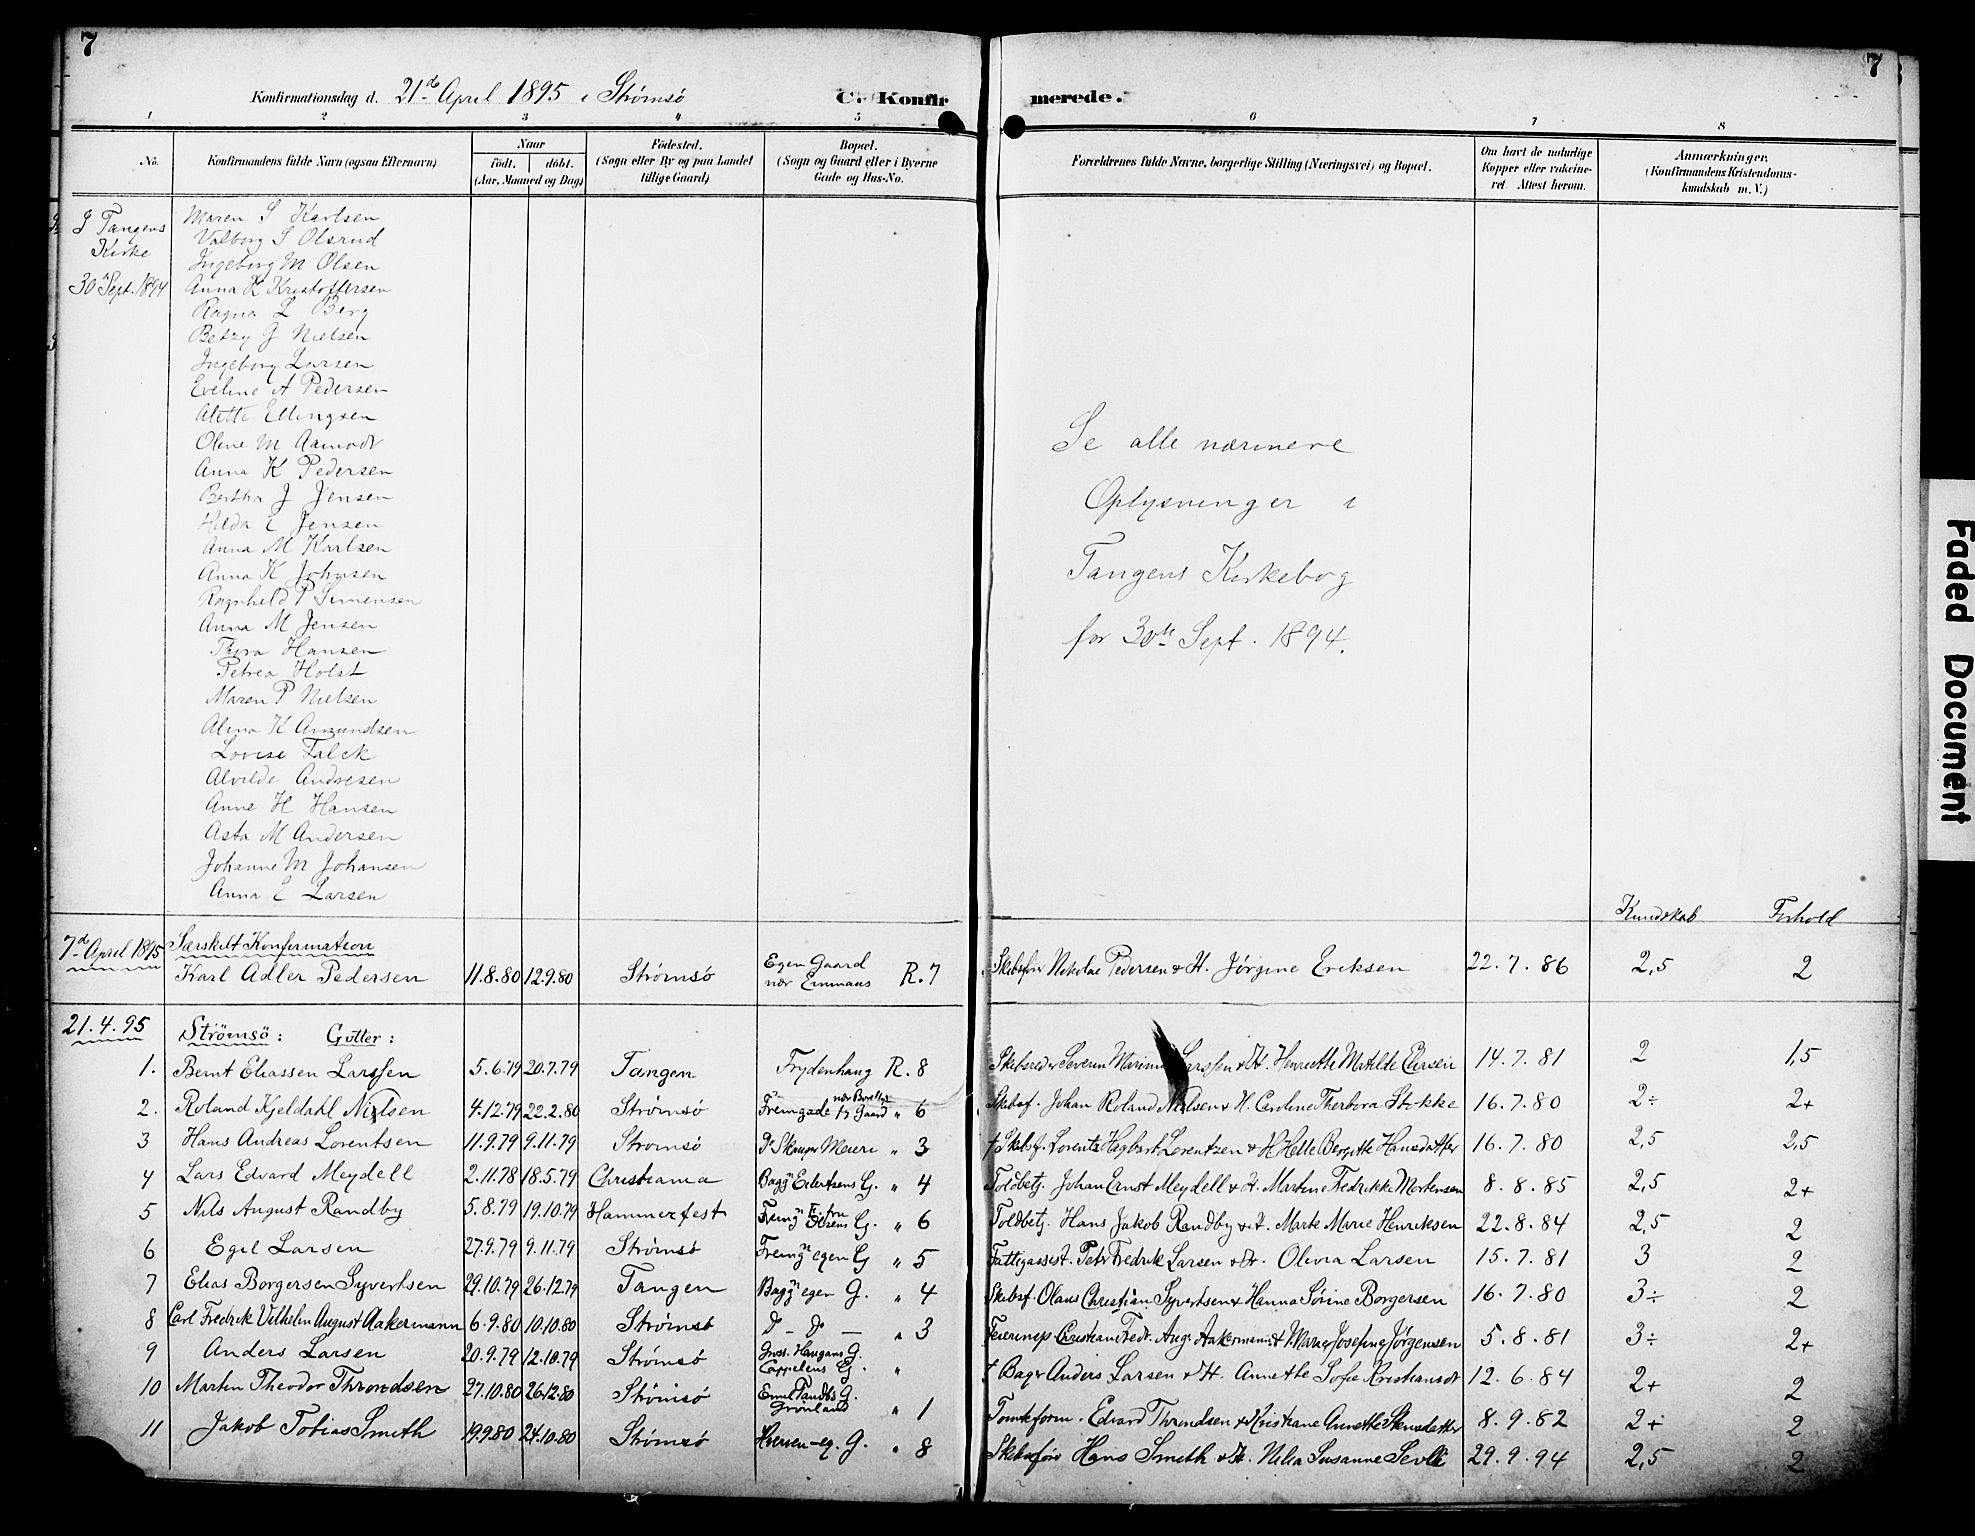 7
7
Konfirmationsdag d. 21de April 1895 i Strømsø
C. Konfirmerede.
1 2 3 4 5 6 7 8
No.
Konfirmandens fulde Navn (ogsaa Efternavn)
Naar
födt. döbt.
(Aar, Maaned og Dag)
Födested.
(Sogn eller By og paa Landet
tillige Gaard)
Bopæl.
(Sogn og Gaard eller i Byerne
Gade og Hus-No.
Forældrenes fulde Navne, borgerlige Stilling (Næringsvei) og Bopæl.
Om havt de naturlige
Kopper eller vakcine-
ret. Attest herom.
Anmærkninger.
(Konfirmandens Kristendoms-
kundskab m. V.)
I Tangens
Kirke
30 Sept. 1894
Maren S Karlsen
Valborg S Olsrud
Ingeborg M Olsen
Anna K Kristoffersen
Ragna L Berg
Betzy G Nielsen
Ingeborg Larsen
Eveline A Pedersen
Alette Ellingsen
Oline M Aamodt
Anna K Pedersen
Bertha J Jensen
Hilda E Jensen
Anna M Karlsen
Anna K Johnsen
Ragnhild P Simensen
Anna M Jensen
Thora Hansen
Petrea Holst
Maren P Nielsen
Alina K Amundsen
Lovise Falck
Alvilde Andresen
Anne H Hansen
Asta M Andersen
Johanne M Johansen
Anna E Larsen
Se alle nærmere
Oplysninger i
Tangens Kirkebog
for 30te Sept. 1894.
Kundskab Forhold
7de April 1895 Særskilt Konfirmation
Karl Adler Pedersen 11.8.80 12.9.80 Strømsø Egen Gaard nær Emmaus R. 7 Skibsfør Nikolai Pedersen & H. Jørgine Eriksen 22.7.86 2,5 2
21.4.95 Strømsø: Gutter:
1. Bernt Eliassen Larssen 5.6.79 20.7.79 Tangen Frydenhaug R. 8 Skibsreder Severin Larssen & H. Henriette Matilde Eliesen 14.7.81 2 1,5
2. Roland Kjeldahl Nielsen 4.12.79 22.2.80 Strømsø Fremgade Gaard " 6 Skibsf. Johan Roland Nielsen & H. Caroline Therbora Stokke 16.7.80 2÷ 2+
3 Hans Andreas Lorentsen 11.9.79 9.11.79 Strømsø Meieri " 3 † Skibsf. Lorentz Hagbart Lorentzen & H. Helle Bergitte Hansdatter 16.7.80 2,5 2,5
4 Lars Edvard Meydell 2.11.78 18.5.79 Christiania Bagg. Eilertsens G. " 4 Toldbetj. Johan Ernst Meydell & H. Martine Fredrikke Mortensen 8.8.85 2,5 2+
5 Nils August Randby 5.8.79 19.10.79 Hammerfest Fremgn Fru Olsens G. " 6 Toldbetj. Hans Jakob Randby & H. Marte Marie Henriksen 22.8.84 2,5 2
6 Egil Larsen 27.9.79 9.11.79 Strømsø Fremgn egen G " 5 Fattigassist. Petr Fredrik Larsen & H. Olivia Larsen 15.7.81 3 2
7 Elias Borgersen Syvertsen 29.10.79 26.12.79 Tangen Baggn egen G. " 4 Skibsf. Olaus Christian Syvertsen & Hanna Sørine Borgersen 16.7.80 3÷ 2
8 Carl Fredrik Vilhelm August Aakermann 6.9.80 10.10.80 Strømsø do – do – " 3 Feierinsp. Christian Fredr. Aug. Aakermann & H. Marie Josefine Jørgensen 5.8.81 3÷ 2+
9 Anders Larsen 20.9.79 12.10.79 Strømsø Gross. Haugans G. Cappelens G. " † Bager Anders Larsen & H. Annette Sofie Kristiansdt 12.6.84 2+ 2
10 Martin Theodor Throndsen 27.10.80 26.12.80 Strømsø Emil Tandbs G. Grønland " 1 Tomteform. Edvard Throndsen & Kristiane Annette Stensdatter 8.9.82 2+ 2
11 Jakob Tobias Smith 19.9.80 24.10.80 Strømsø eg. G. " 8 Skibsfør Hans Smith & H. Nilia Susanne 29.9.94 2,5 2
Faded Document